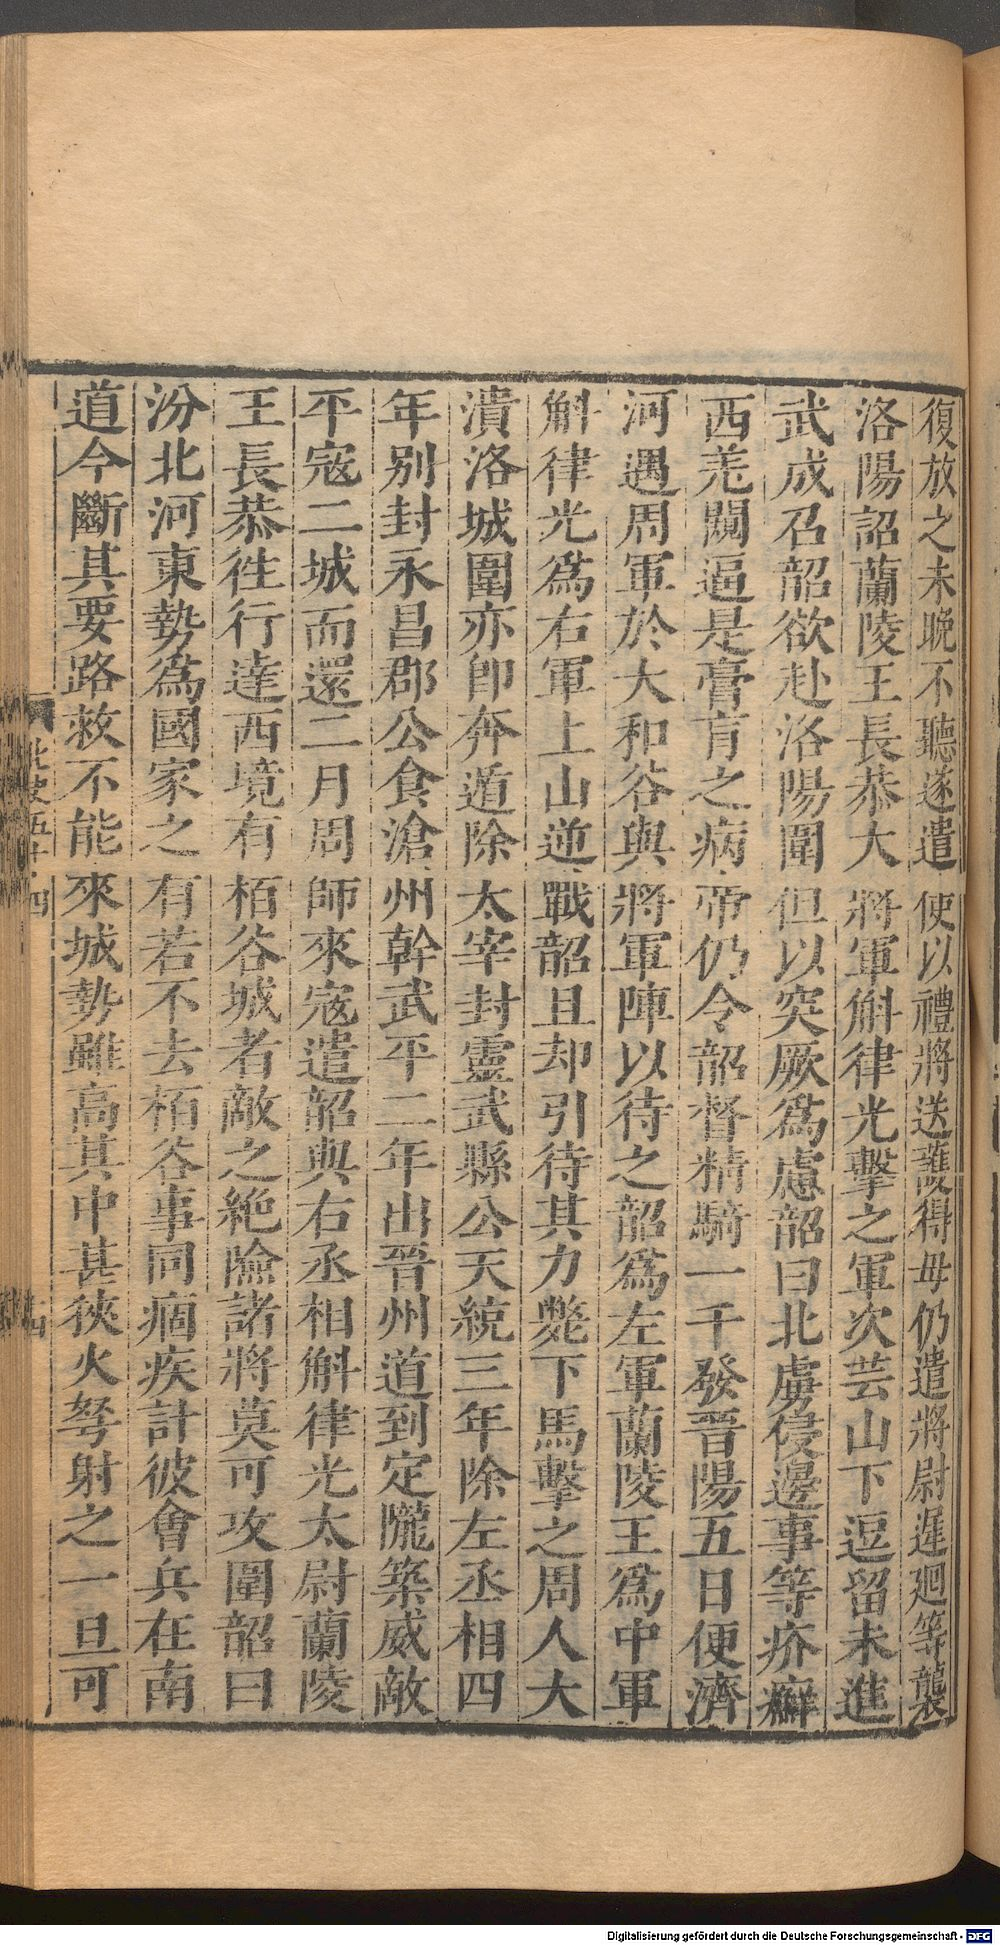 復放之未晚不聽遂遣使以禮將送護得毋仍遣將尉遲廻等襲
洛陽詔蘭陵王長恭大將軍斛律光擊之軍次芸山下逗留未進
武成召韶欲赴洛陽圍但以突厥爲慮韶曰北虜侵邊事等疥癬
西羌闚逼是膏肓之病帝仍令韶督精騎一千發晉陽五日便濟
河遇周軍於大和谷與將軍陣以待之韶爲左軍蘭陵王爲中軍
斛律光爲右軍上山逆戰韶且却引待其力斃下馬擊之周人大
潰洛城圍亦卽奔遁除太宰封靈武縣公天統三年除左丞相四
年别封永昌郡公食滄州幹武平二年出晉州道到定隴築威敵
平寇二城而還二月周師來寇遣韶與右丞相斛律光太尉蘭陵
王長恭徃行達西境有栢谷城者敵之絶險諸將莫可攻圍韶曰
汾北河東勢爲國家之有若不去栢谷事同痼疾計彼會兵在南
道今斷其要路救不能來城勢雖高其中甚狹火弩射之一旦可
北史五十四
十四
Digitalisierung gefördert durch die Deutsche Forschungsgemeinschaft - DFG